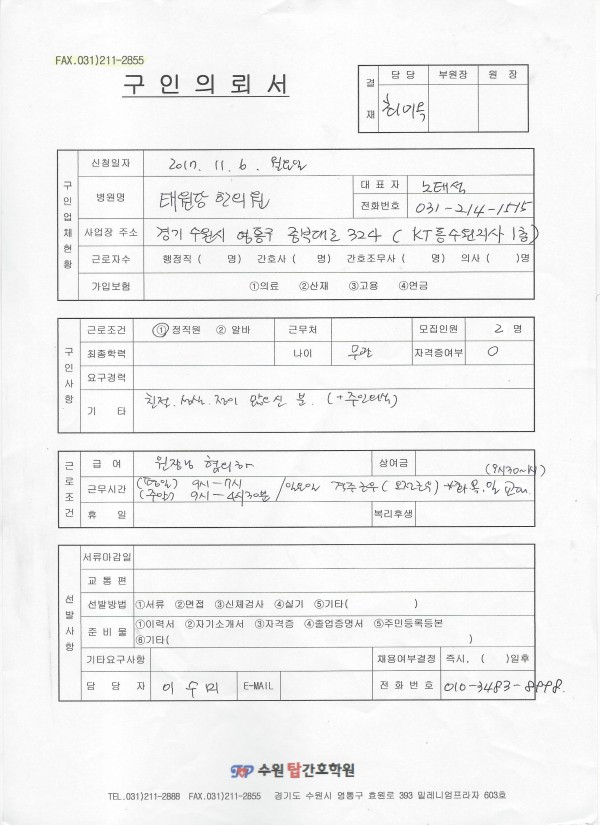 FAX.031)211-2855
구 인 의 뢰 서
결 재 담 당 부원장 원 장
구인업체현황
신청일자 2017. 11. 6. 월요일
병원명 태원당 한의원 대 표 자 노태석
전화번호 031-214-1575
사업장 주소 경기 수원시 영통구 중부대로 324 ( KT 동수원지사 1층)
근로자수 행정직 ( 명) 간호사 ( 명) 간호조무사 ( 명) 의사 ( )명
가입보험 ①의료 ②산재 ③고용 ④연금
구인사항
근로조건 ① 정직원 ② 알바 근무처 모집인원 2 명
최종학력 나이 무관 자격증여부 O
요구경력
기 타 친절. 성실. 정이 많으신 분. (+주인의식)
근로조건
급 여 원장님 협의하 상여금
(9시30~1시)
근무시간 (평일) 9시-7시 / 일요일 격주근무 (오전근무)
(주말) 9시-4시30분
휴 일 복리후생
선발사항
서류마감일
교 통 편
선발방법 ①서류 ②면접 ③신체검사 ④실기 ⑤기타( )
준 비 물 ①이력서 ②자기소개서 ③자격증 ④졸업증명서 ⑤주민등록등본
⑥기타( )
기타요구사항 채용여부결정 즉시, ( )일후
담 당 자 이수미 E-MAIL 전 화 번 호 010-3483-8998.
TOP 수원 탑간호학원
TEL.031)211-2888 FAX.031)211-2855 경기도 수원시 영통구 효원로 393 밀레니엄프라자 603호